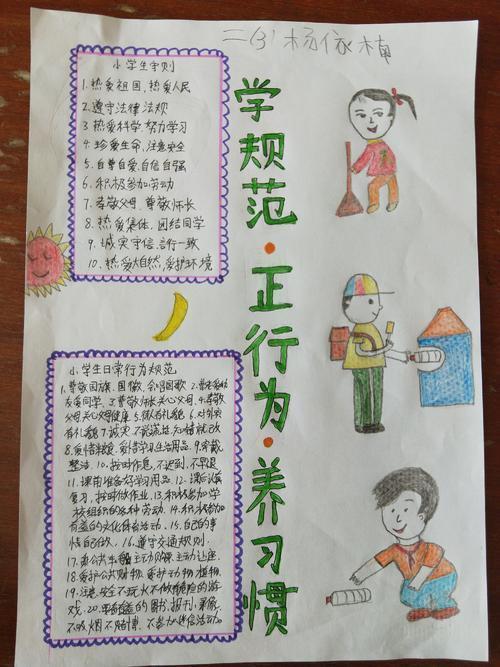 二(3) 杨依楠
小学生守则
1.热爱祖国,热爱人民
2.遵守法律法规
3.热爱科学,努力学习
4.珍爱生命,注意安全
5.自尊自爱,自信自强
6.积极参加劳动
7.孝敬父母,尊敬师长
8.热爱集体,团结同学
9.诚实守信,言行一致
10.热爱大自然,爱护环境
学规范·正行为·养习惯
小学生日常行为规范
1.尊敬国旗、国徽,会唱国歌 2.
友爱同学 3.尊敬师长关心父母、4.孝敬
父母关心父母健康 5.微有礼貌 6.对別
有礼貌 7.诚实 不说谎话 知错就改
8.爱惜粮食、爱惜学习生活用品. 9.穿戴
整洁. 10.按时作息,不迟到,不早退
11.课前准备好学习用品. 12.课后认真
复习,按时做作业. 13.积极参加学
校组织的各种劳动. 14.积极参加
有益的文化体育活动. 15.自己的事
情自己做. 16.遵守交通规则.
17.乘公共车 主动购票 主动让座.
18.爱护公共财物.爱护动物植物.
19.注意安全不玩火不做危险的游
戏. 20. 的图书.报刊.录像.
不吸烟 不赌博. 不参加迷信活动